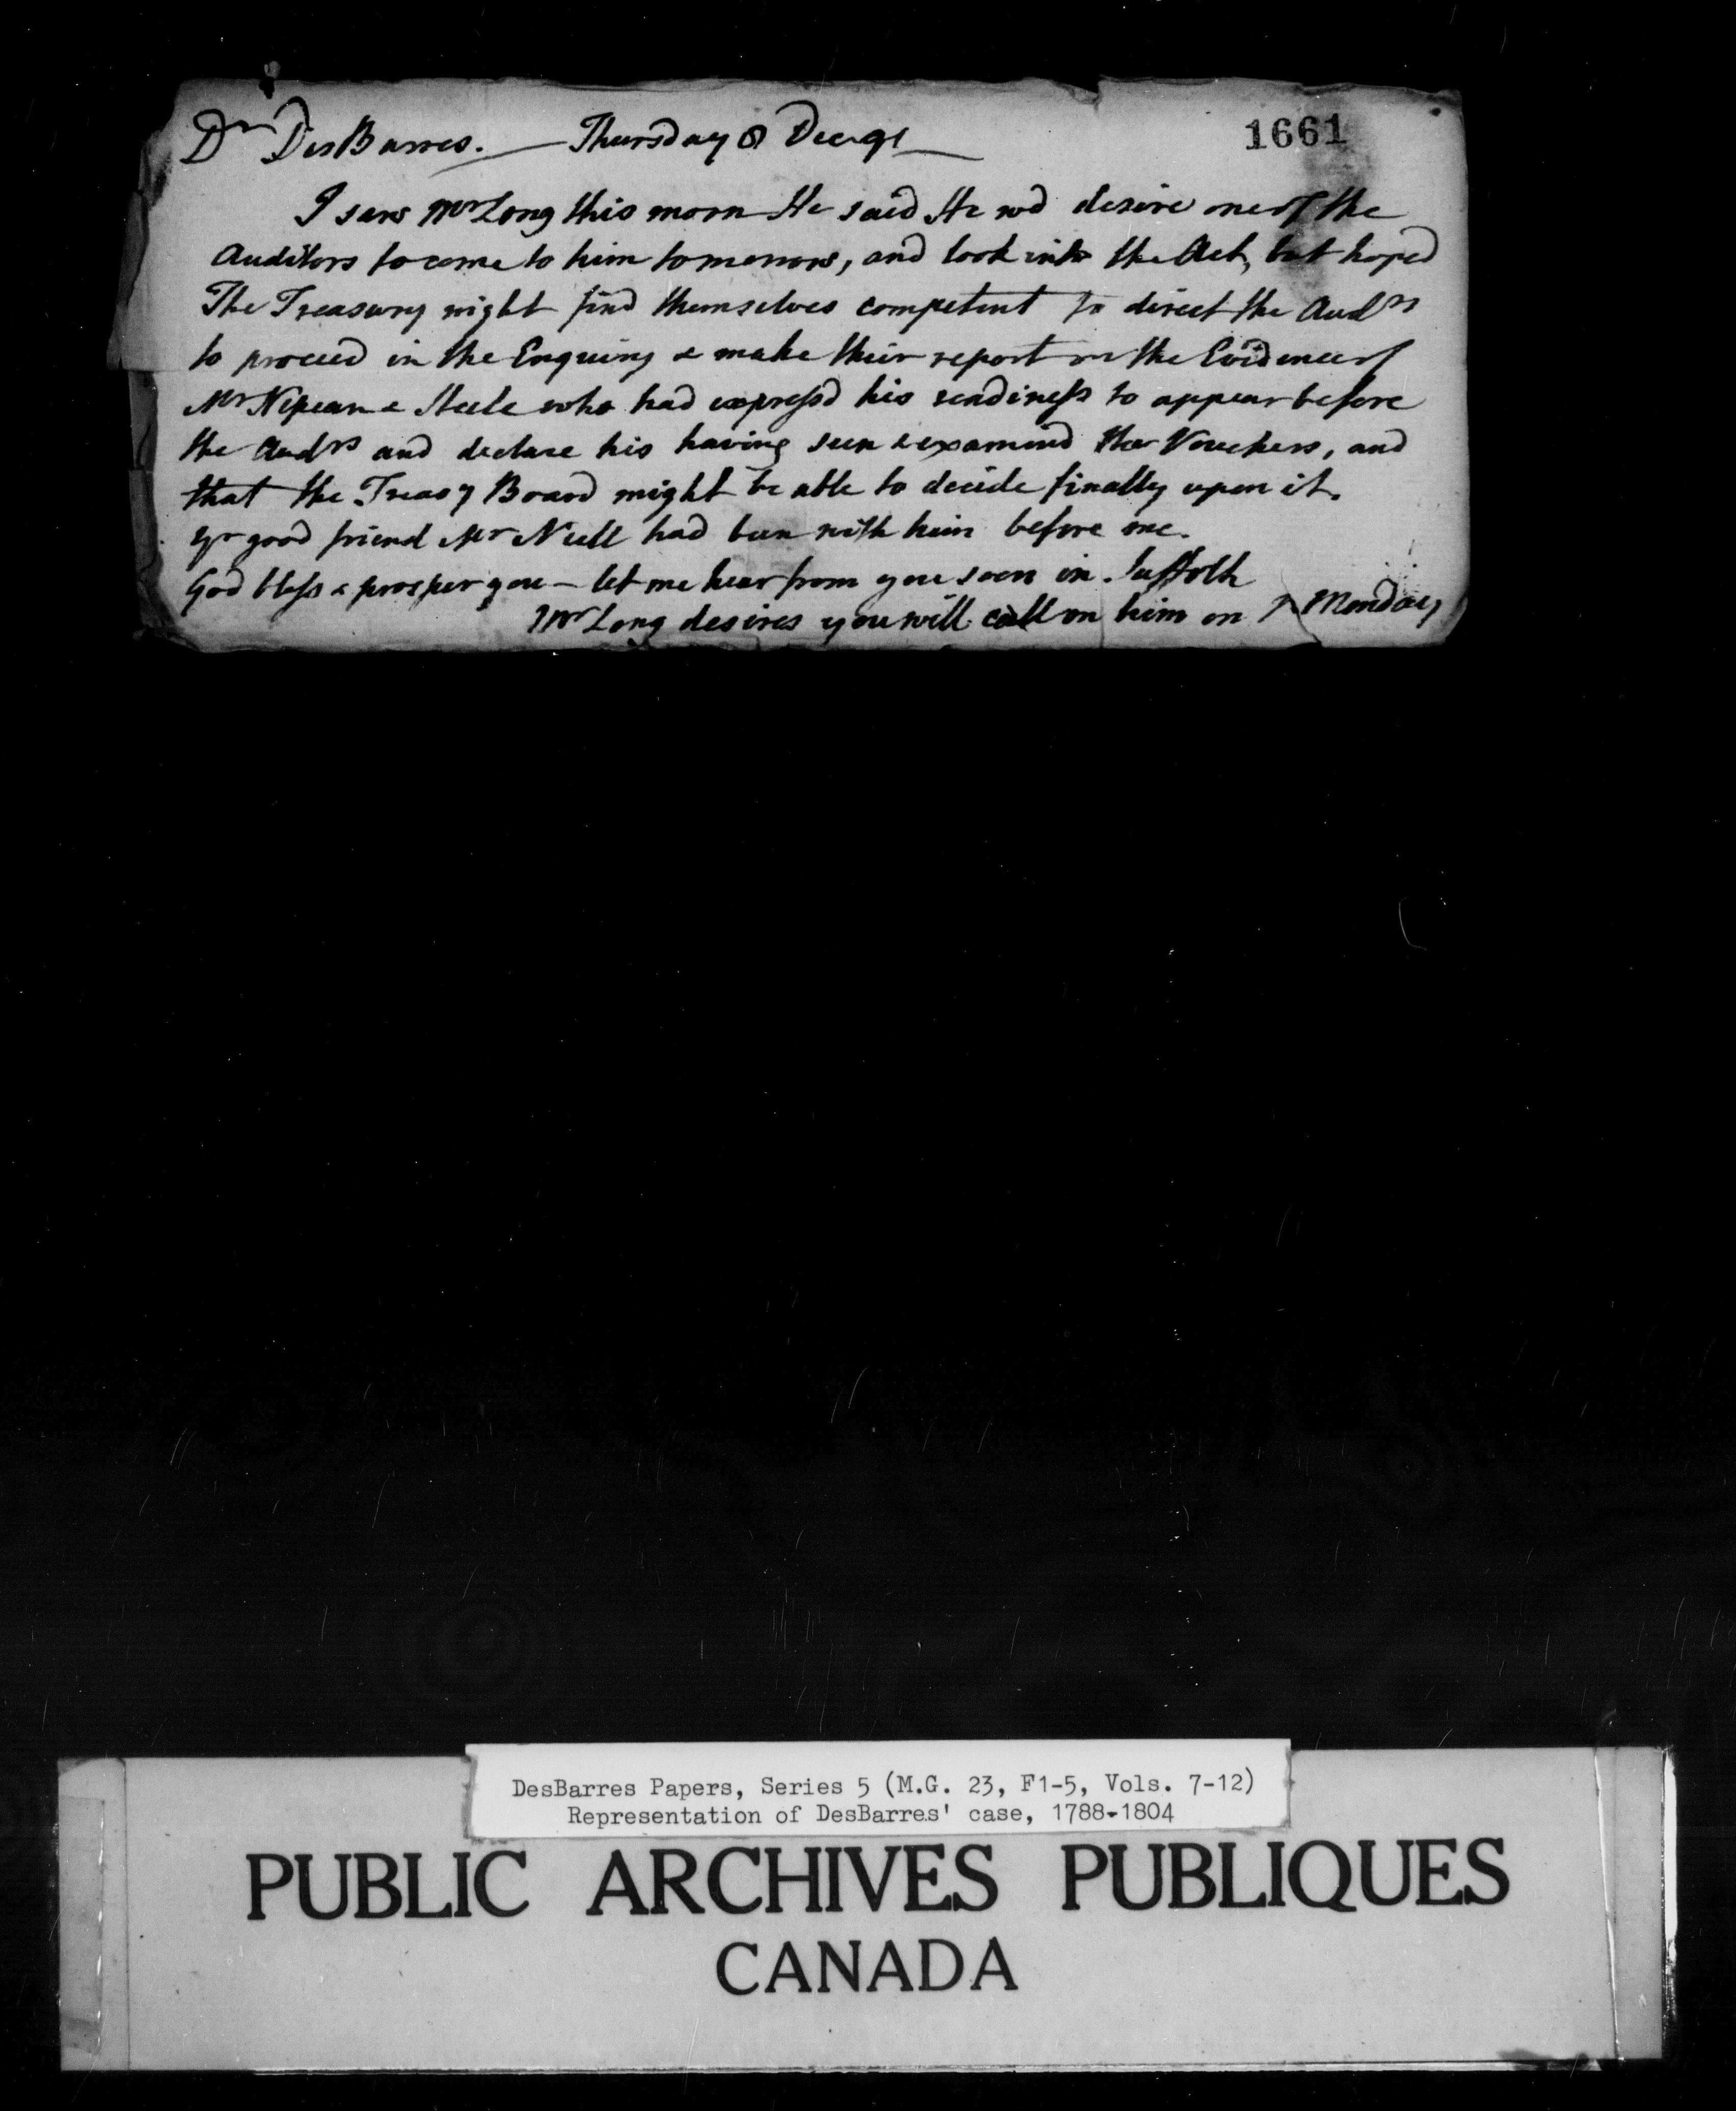 Dr DesBarres. — Thursday 8 Dec. 91
1661
I saw Mr Long this morn He said He wd desire one of the
Auditors to come to him tomorrow, and look into the Act, but hoped
The Treasury might find themselves competent to direct the Audrs
to proceed in the Enquiry & make their report on the Evidence of
Mr Nepean & Steele who had expressd his readiness to appear before
the Audrs and declare his having seen & examined the Vouchers, and
that the Treasy Board might be able to decide finally upon it.
Yr good friend Mr Neill had been with him before me.
God bless & prosper you — let me hear from you soon in Suffolk
Mr Long desires you will call on him on Monday
DesBarres Papers, Series 5 (M.G. 23, F1-5, Vols. 7-12)
Representation of DesBarres' case, 1788-1804
PUBLIC ARCHIVES PUBLIQUES
CANADA